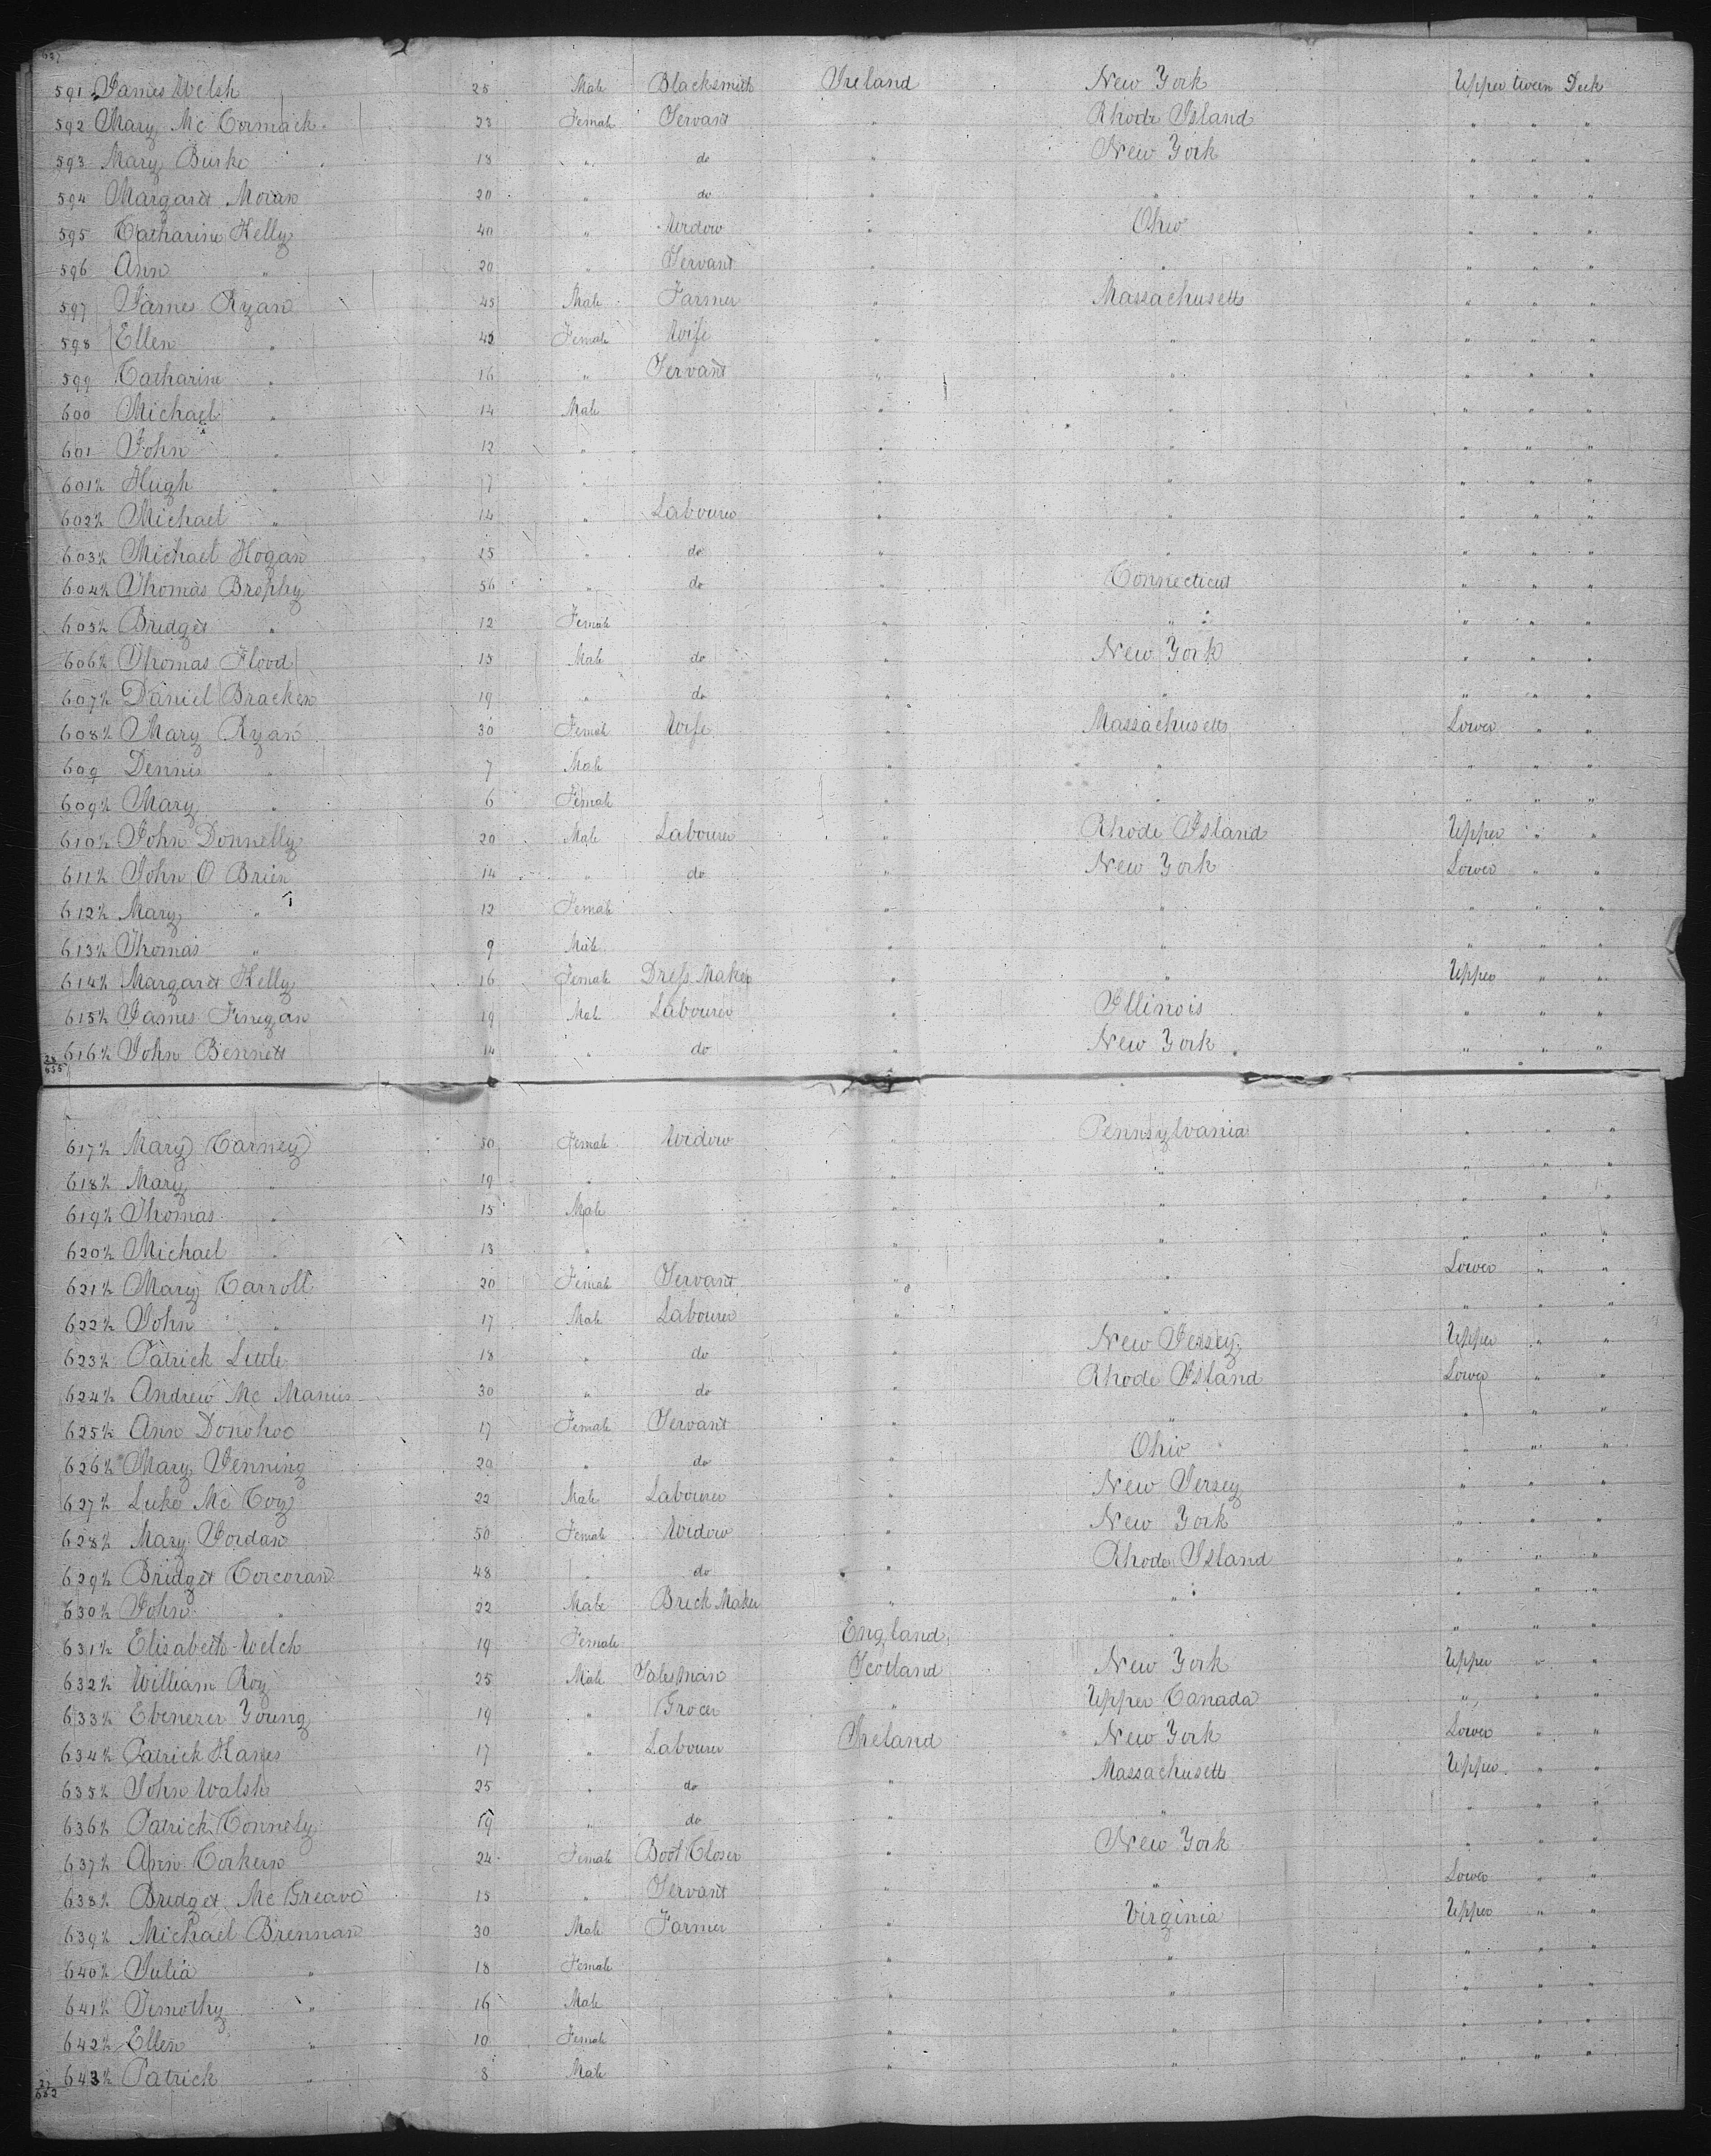 591 James Welsh 25 Male Blacksmith Ireland New York Upper tween Deck
592 Mary Mc Cormack 23 Female Servant " Rhode Island " " "
593 Mary Burke 18 " do " New York " " "
594 Margaret Moran 20 " do " " " " "
595 Catharine Kelly 40 " Widow " Ohio " " "
596 Ann " 20 " Servant " " " " "
597 James Ryan 45 Male Farmer " Massachusetts " " "
598 Ellen " 42 Female Wife " " " " "
599 Catharine " 16 " Servant " " " " "
600 Michael " 14 Male " " " " "
601 John " 12 " " " " " "
601½ Hugh " 7 " " " " " "
602½ Michael " 14 " Labourer " " " " "
603½ Michael Hogan 25 " do " " " " "
604½ Thomas Brophy 56 " do " Connecticut " " "
605½ Bridget " 12 Female " " " " "
606½ Thomas Flood 15 Male do " New York " " "
607½ Daniel Bracken 19 " do " " " " "
608½ Mary Ryan 30 Female Wife " Massachusetts Lower " "
609 Dennis " 7 Male " " " " "
609½ Mary " 6 Female " " " " "
610½ John Donnelly 20 Male Labourer " Rhode Island Upper " "
611½ John O Brien 14 " do " New York Lower " "
612½ Mary " 12 Female " " " " "
613½ Thomas " 9 Male " " " " "
614½ Margaret Kelly 16 Female Dress Maker " " Upper " "
615½ James Finegan 19 Male Labourer " Illinois " " "
616½ John Bennett 14 " do " New York " " "
617½ Mary Carney 50 Female Widow " Pennsylvania " " "
618½ Mary " 19 " " " " " "
619½ Thomas " 15 Male " " " " "
620½ Michael " 13 " " " " " "
621½ Mary Carroll 20 Female Servant " " Lower " "
622½ John " 17 Male Labourer " " " " "
623½ Patrick Little 18 " do " New Jersey Upper " "
624½ Andrew Mc Manus 30 " do " Rhode Island Lower " "
625½ Ann Donohoo 17 Female Servant " " " " "
626½ Mary Jenning 20 " do " Ohio " " "
627½ Luke Mc Coy 22 Male Labourer " New Jersey " " "
628½ Mary Jordan 50 Female Widow " New York " " "
629½ Bridget Corcoran 48 " do " Rhode Island " " "
630½ John " 22 Male Brick Maker " " " " "
631½ Elisabeth Welch 19 Female England " " " "
632½ William Roy 25 Male Salesman Scotland New York Upper " "
633½ Ebenezer Young 19 " Grocer " Upper Canada " " "
634½ Patrick Hanes 17 " Labourer Ireland New York Lower " "
635½ John Walsh 25 " do " Massachusetts Upper " "
636½ Patrick Connely 19 " do " " " " "
637½ Ann Corkern 24 Female Boot Closer " New York " " "
638½ Bridget Mc Greavo 15 " Servant " " Lower " "
639½ Michael Brennan 30 Male Farmer " Virginia Upper " "
640½ Julia " 18 Female " " " " "
641½ Timothy " 16 Male " " " " "
642½ Ellen " 10 Female " " " " "
643½ Patrick " 8 Male " " " " "